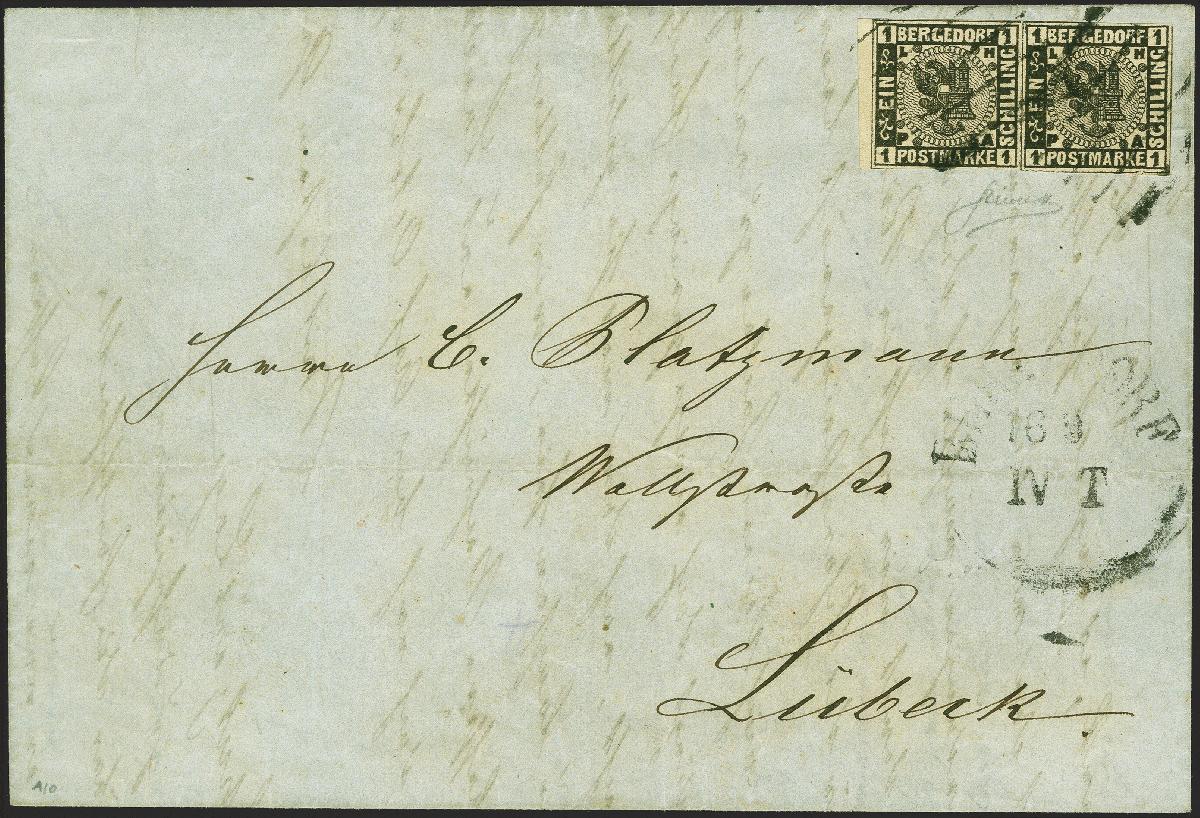 1 BERGEDORF 1 1 BERGEDORF 1
L H L H
EIN SCHILLING EIN SCHILLING
P A P A
1 POSTMARKE 1 1 POSTMARKE 1
Herrn C. Platzmann
Wallstraße
Lübeck
16 9
IV T
A10